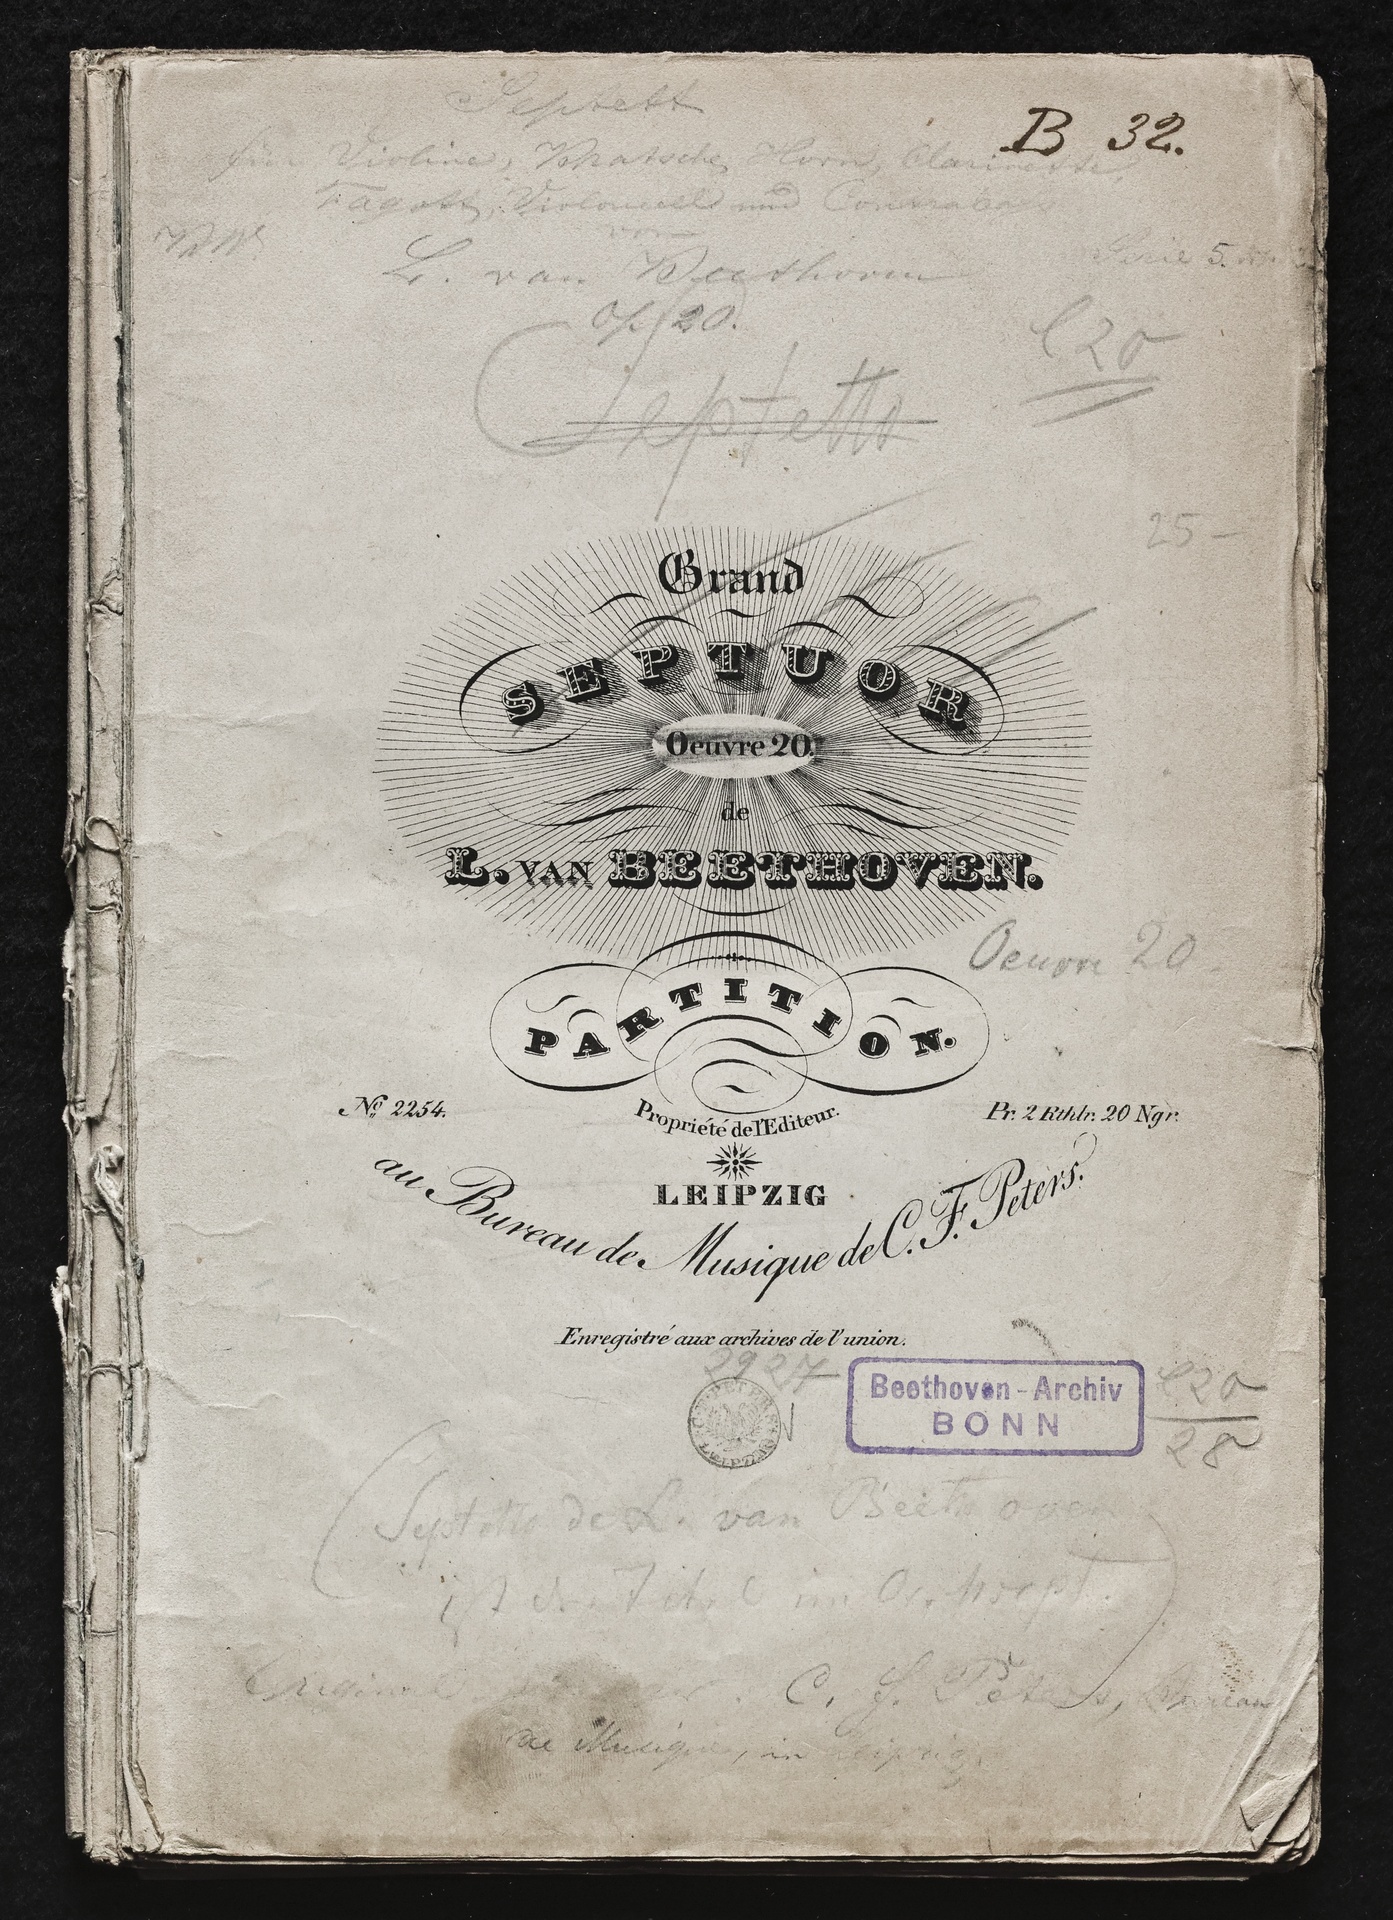 Septett
B 32.
für Violine, Bratsche, Horn, Clarinette,
Fagott, Violoncell und Contrabass
von
Serie 5.
L. van Beethoven
Op. 20.
Septetto
25 –
Grand
SEPTUOR
Oeuvre 20.
de
L. VAN BEETHOVEN.
Oeuvre 20.
PARTITION.
No. 2254.
Propriété de l'Editeur.
Pr. 2 Rthlr. 20 Ngr.
LEIPZIG
au Bureau de Musique de C. F. Peters.
Enregistré aux archives de l'union.
2927
Beethoven-Archiv
BONN
C. F. PETERS LEIPZIG
28
Septetto de L. van Beethoven
ist der Titel im
Original C. F. Peters, Bureau
de Musique, in Leipzig.